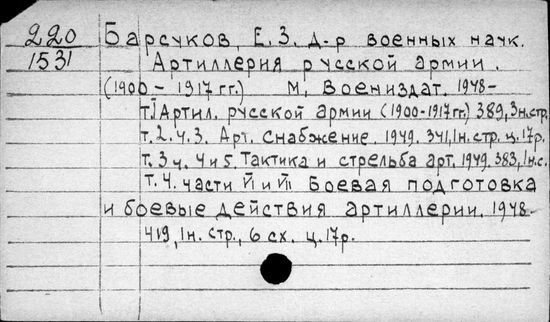 220 Барсуков, Е.З. д-р военных наук.
1531 Артиллерия русской армии.
(1900-1917 гг.) М, Воениздат. 1948-
т.I Артил. русской армии (1900-1917 гг.) 389, 3н.стр.
т.2.ч.3. Арт. снабжение. 1949. 341, 1н.стр. ц.17р.
т.3 ч. 4 и 5. Тактика и стрельба арт. 1949. 383, 1н.с.
т.4. части й и й Боевая подготовка
и боевые действия артиллерии. 1948-
419, 1н. стр., 6 сх. ц.17р.